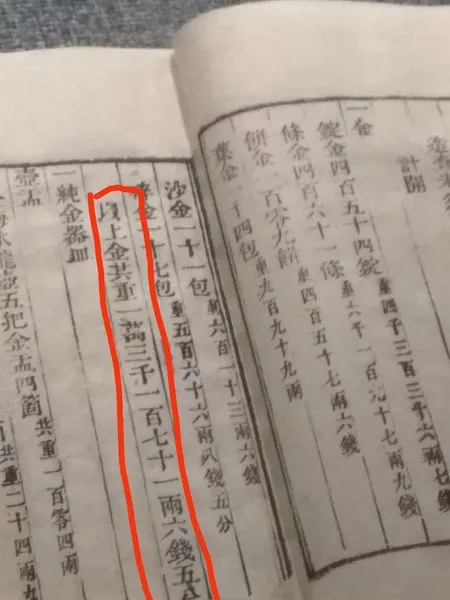 計開
一金
錠金四百五十四錠 重四千三百三十六兩七錢
條金四百六十一條 重六千一百九十七兩九錢
餅金一百零九餅 重四百五十七兩六錢
葉金一十四包 重九百九十九兩
沙金一十一包 重六百一十三兩六錢
碎金一十七包 重五百六十六兩八錢五分
以上金共重一萬三千一百七十一兩六錢五分
一純金器皿
壺盂
海水龍壺五把金盂四箇 共重一百零四兩
共重二十四兩九